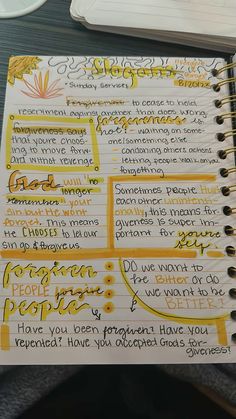 Slogans
8/20/23
- Sunday Services
Forgiveness - to cease to hold
resentment against another that does wrong.
forgiveness says
that you're choos-
ing to move forw-
ard without revenge
forgiveness is
not:
- waiting on some-
one/something else
- condoning others actions
- letting people walk on you
forgetting
God will no
longer
remember your
sin but He wont
forget. This means
he CHOOSES to let our
sin go & forgive us.
Sometimes people Hurt
each other unintenti-
onally, this means for-
giveness is super im-
portant for yours
self
forgiven
PEOPLE forgive
people
DO we want to
be Bitter or do
we want to be
BETTER?
Have you been forgiven? Have you
repented? Have you accepted Gods for-
giveness?